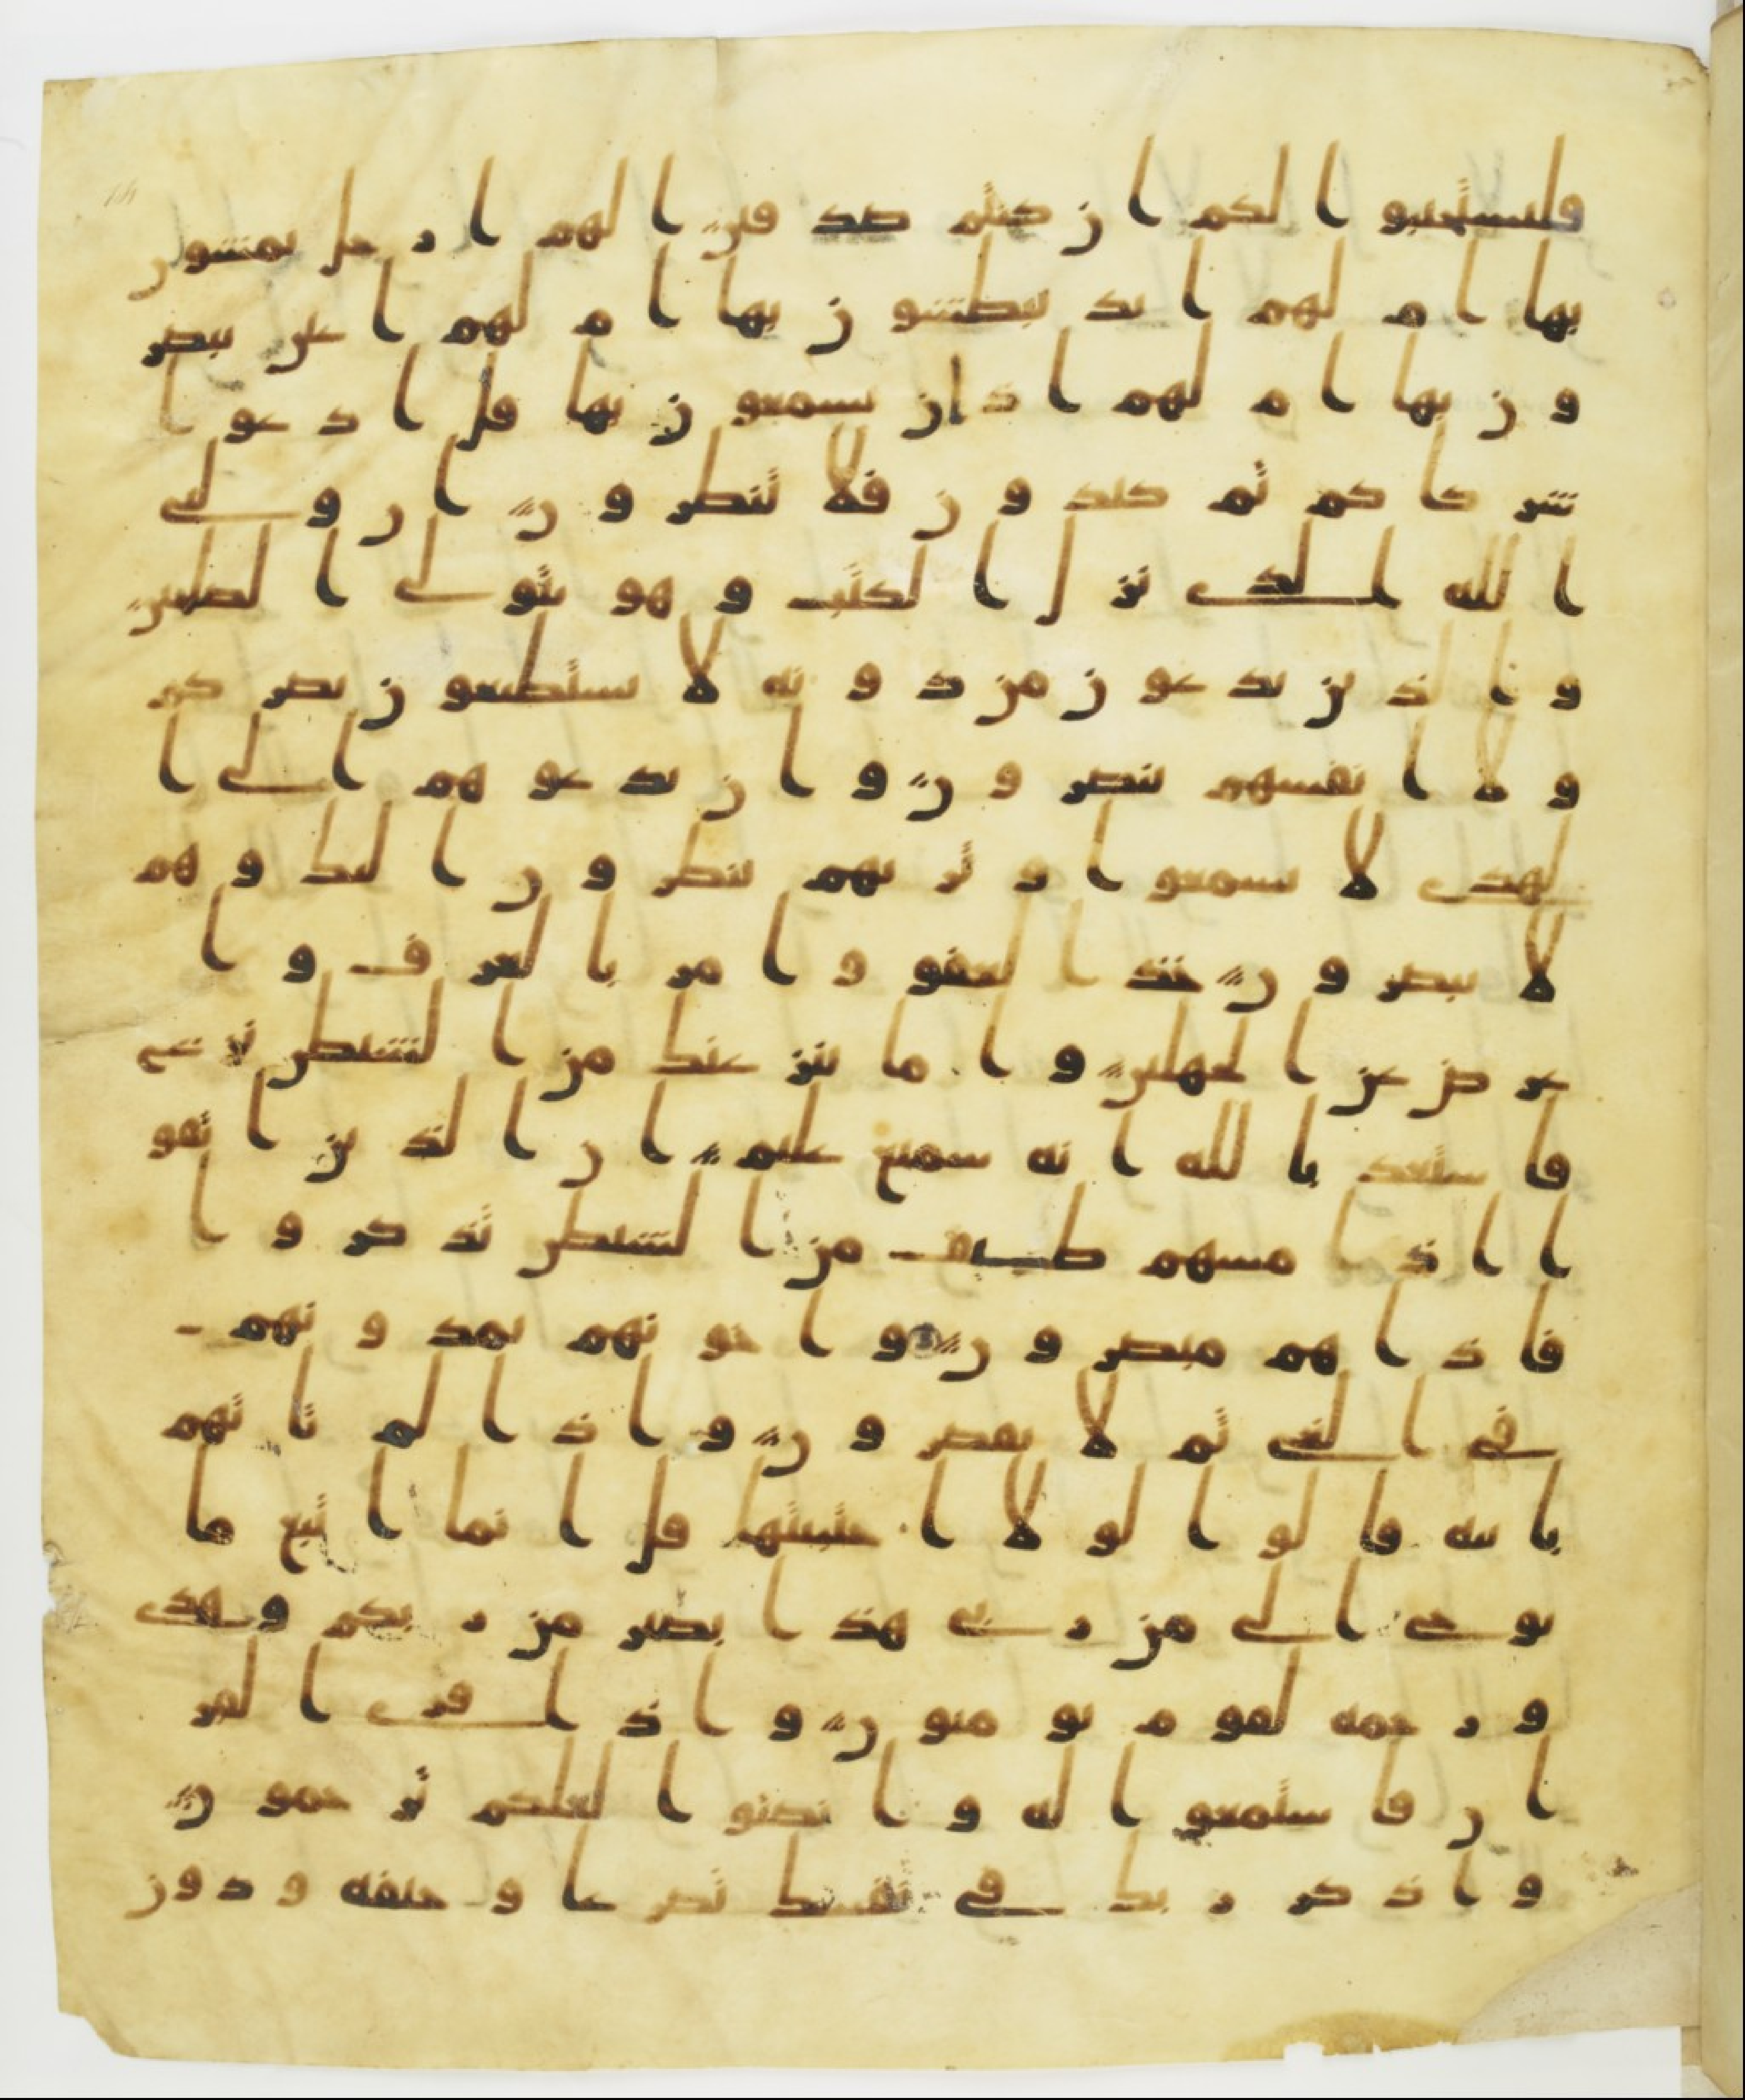 فليستجيبوا لكم ان كنتم صدقين الهم ارجل يمشون
بها ام لهم ايد يبطشون بها ام لهم اعين يبصر
ون بها ام لهم اذان يسمعون بها قل ادعوا
شركاكم ثم كيدون فلا تنظرون ان ولي
الله الذي نزل الكتب وهو يتولى الصلحين
والذين يدعون من دونه لا يستطيعون نصركم
ولا انفسهم ينصرون وان يدعوهم الى ا
لهدى لا يسمعوا وترىهم ينظرون اليك وهم
لا يبصرون خذ العفو وامر بالعرف وا
عرض عن الجهلين واما ينزغنك من الشيطن نزغ
فاستعذ بالله انه سميع عليم ان الذين اتقو
ا اذا مسهم طيف من الشيطن تذكروا
فاذا هم مبصرون واخونهم يمدونهم
في الغي ثم لا يقصرون واذا لم تاتهم
باية قالوا لولا اجتبيتها قل انما اتبع ما
يوحى الي من ربي هذا بصير من ربكم وهدى
ورحمة لقوم يومنون واذا قرى القر
ان فاستمعوا له وانصتوا لعلكم ترحمون
واذكر ربك في نفسك تضرعا وخيفة ودون